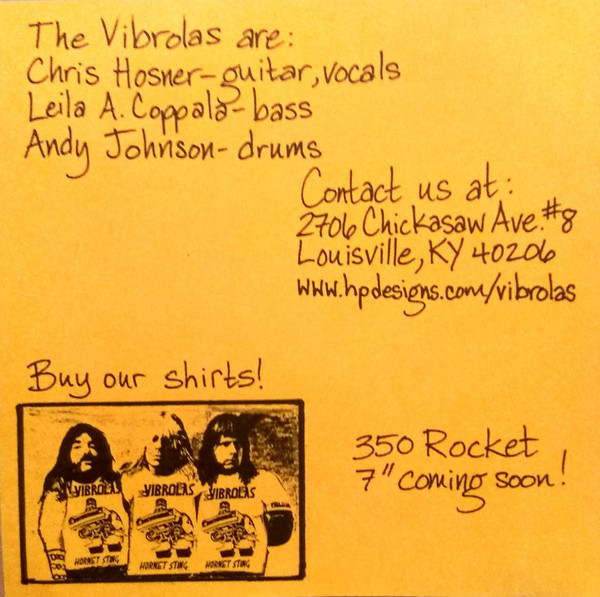 The Vibrolas are:
Chris Hosner-guitar, vocals
Leila A. Coppala-bass
Andy Johnson-drums
Contact us at:
2706 Chickasaw Ave. #8
Louisville, KY 40206
www.hpdesigns.com/vibrolas
Buy our shirts!
VIBROLAS VIBROLAS VIBROLAS
HORNET STING HORNET STING HORNET STING
350 Rocket
7" coming soon!